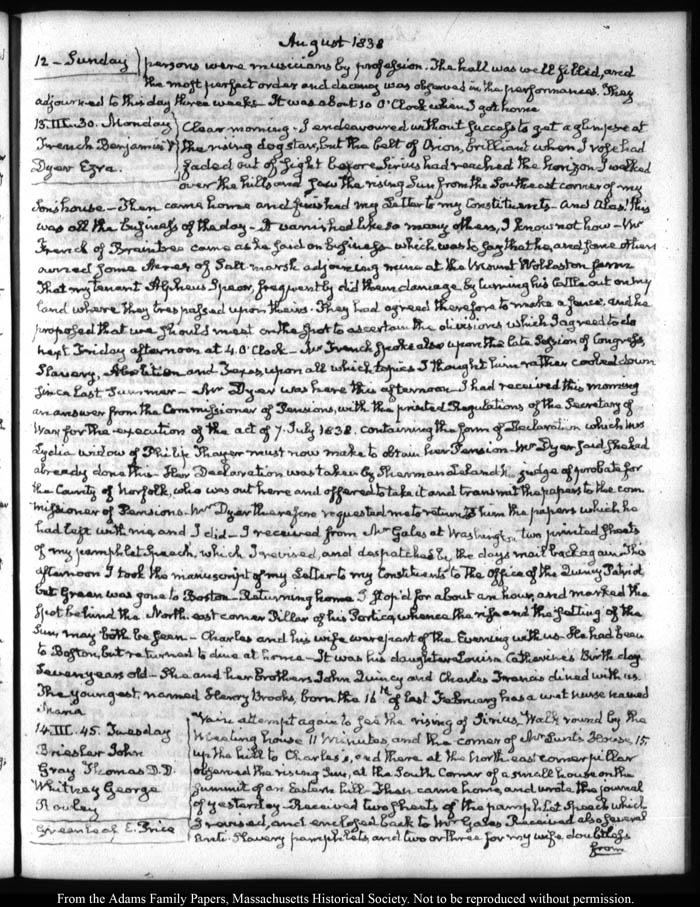 August 1838
12 - Sunday persons were musicians by profession. The hall was well filled, and
the most perfect order and decency was observed in the performances. They
adjourned to this day three weeks - It was about 10 O'Clock when I got home
13. III. 30. Monday Clear morning - I endeavoured without success to get a glimpse at
French Benjamin V the rising dogstar, but the belt of Orion, brilliant when I rose had
Dyer Ezra. faded out of sight before Sirius had reached the horizon I walked
over the hills and saw the rising Sun from the Southeast corner of my
Sons house - Then came home and finished my Letter to my Constituents - And Alas! this
was all the business of the day - It vanished like so many others, I know not how - Mr
French of Braintree came as he said on business which was to say that he, and some others
owned some Acres of Salt marsh adjoining mine at the Mount Wollaston farm
That my tenant Alpheus Spear, frequently did them damage by turning his Cattle out on my
land where they trespassed upon theirs. They had agreed therefore to make a fence, and he
proposed that we should meet on the spot to ascertain the divisions which I agreed to do
next Friday afternoon at 4. O'Clock - Mr French spoke also upon the late Session of Congress,
Slavery, Abolition and Texas, upon all which topics I thought him rather cooled down
since last Summer - Mr Dyer was here this afternoon - I had received this morning
an answer from the Commissioner of Pensions, with the printed Regulations of the Secretary of
War for the execution of the act of 7. July 1838. containing the form of Declaration which Mrs
Lydia widow of Philip Thayer must now make to obtain her Pension - Mr Dyer said she had
already done this - Her Declaration was taken by Sherman Leland judge of probate for
the County of Norfolk, who was out here and offered to take it and transmit the papers to the com-
missioner of Pensions - Mr Dyer therefore requested me to return to him the papers which he
had left with me, and I did - I received from Mr Gales at Washington two printed sheets
of my pamphlet speech, which I revised, and despatched by the days mail back again This
afternoon I took the manuscript of my Letter to my Constituents to the Office of the Quincy Patriot
but Green was gone to Boston - Returning home I stop'd for about an hour, and marked the
spot behind the North-east corner Pillar of his Portico, whence the rise and the setting of the
Sun, may both be seen - Charles and his wife were part of the Evening with us - He had been
to Boston, but returned to dine at home - It was his daughter Louisa Catherine's Birth day
Seven years old - She and her brothers John Quincy and Charles Francis dined with us.
The youngest, named Henry Brooks, born the 16th of last February has a wet nurse named
Maria
14. III. 45. Tuesday Vain attempt again to see the rising of Sirius, Walk round by the
Briesler John Meeting house 11 Minutes, and the corner of Mr Lunt's House, 15,
Gray Thomas D. D. up the hill to Charles's, and there at the North-east corner pillar
Whitney George observed the rising Sun, at the South Corner of a small house on the
Rowley summit of an Eastern hill - Then came home, and wrote the journal
of yesterday - Received two sheets of the pamphlet speech which
Greenleaf E. Price I revised, and enclosed back to Mr Gales Received also several
Anti-Slavery pamphlets, and two or three for my wife doubtless
from
From the Adams Family Papers, Massachusetts Historical Society. Not to be reproduced without permission.